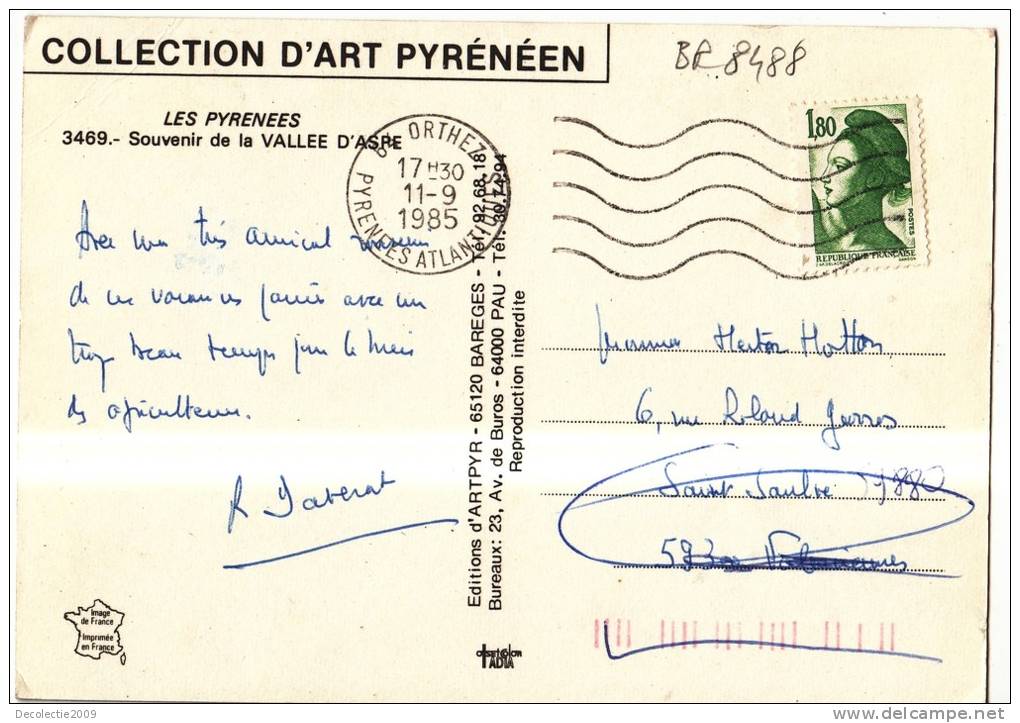 COLLECTION D'ART PYRÉNÉEN
BR 8488
LES PYRENEES
3469.- Souvenir de la VALLEE D'ASPE
ORTHEZ
17H30
11-9
1985
PYRENEES ATLANTIQUES
1,80
POSTES
REPUBLIQUE FRANÇAISE
Avec mon très amical
de ces vacances passées avec un
trop beau temps pour le
des apiculteurs.
Editions d'ARTPYR - 65120 BAREGES - Tél. 92.68.18
Bureaux: 23, Av. de Buros - 64000 PAU - Tél. 30.14.94
Reproduction interdite
6, rue Roland Garros
Saint Saulve
Image
de France
Imprimée
en France
Decolectie2009